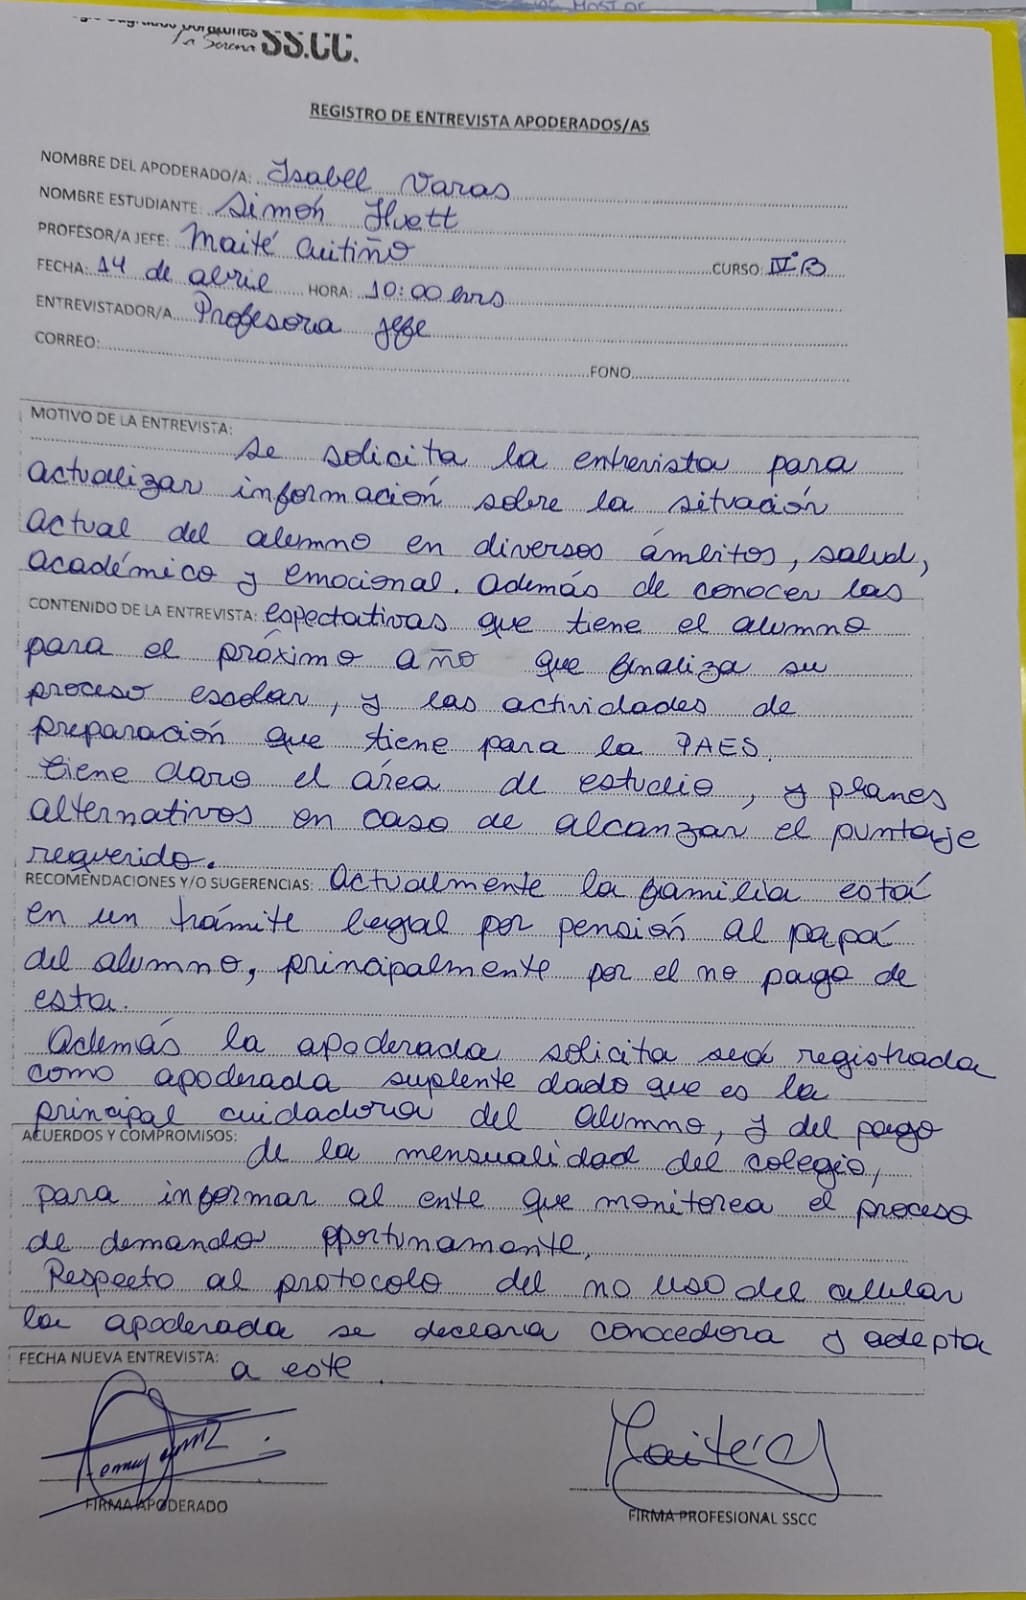 Sagrados Corazones
La Serena SS.CC.
REGISTRO DE ENTREVISTA APODERADOS/AS
NOMBRE DEL APODERADO/A: Isabel Varas
NOMBRE ESTUDIANTE: Simón
PROFESOR/A JEFE: Maité Cuitiño CURSO: IV°B
FECHA: 14 de abril HORA: 10:00 hrs
ENTREVISTADOR/A Profesora jefe
CORREO: FONO
MOTIVO DE LA ENTREVISTA:
se solicita la entrevista para
actualizar información sobre la situación
actual del alumno en diversos ámbitos, salud,
académico y emocional. Además de conocer las
CONTENIDO DE LA ENTREVISTA: espectativas que tiene el alumno
para el próximo año que finaliza su
proceso escolar, y las actividades de
preparación que tiene para la PAES.
tiene claro el área de estudio, y planes
alternativos en caso de alcanzar el puntaje
requerido.
RECOMENDACIONES Y/O SUGERENCIAS: Actualmente la familia está
en un trámite legal por pensión al papá
del alumno, principalmente por el no pago de
esta.
Además la apoderada solicita será registrada
como apoderada suplente dado que es la
principal cuidadora del alumno, y del pago
ACUERDOS Y COMPROMISOS:
de la mensualidad del colegio,
para informar al ente que monitorea el proceso
de demanda oportunamente.
Respecto al protocolo del no uso del celular
la apoderada se declara conocedora y adepta
FECHA NUEVA ENTREVISTA: a este.
FIRMA APODERADO
Maité C
FIRMA PROFESIONAL SSCC